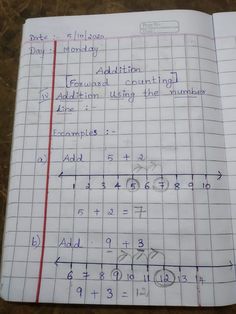 Date :- 5/10/2020
Day :- Monday
Addition
[Forward counting]
Addition Using the number
line :-
Examples :-
a) Add 5 + 2
1 2 3 4 5 6 7 8 9 10
5 + 2 = 7
b) Add 9 + 3
6 7 8 9 10 11 12 13 14
9 + 3 = 12